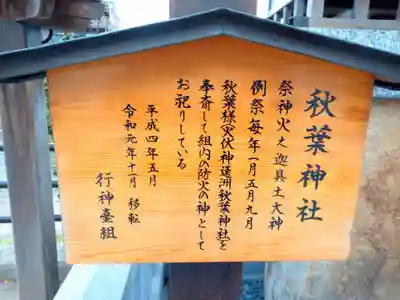 秋葉神社
祭神火之迦具土大神
例祭毎年一月五月九月
秋葉様(火伏神遠洲秋葉神社)を
奉斎して組内の防火の神として
お祀りしている
平成四年五月
令和元年十一月 移転
行神臺組